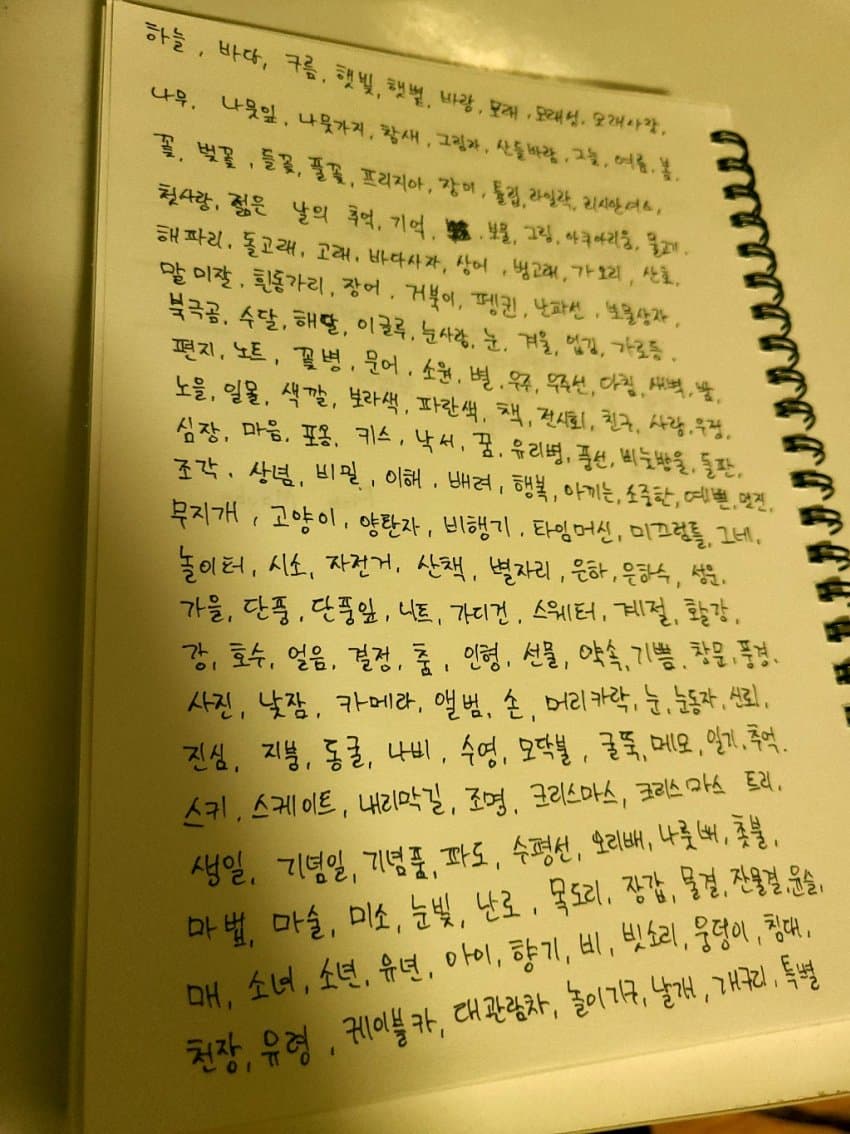 하늘, 바다, 구름, 햇빛, 햇볕, 바람, 모래, 모래성, 모래사장,
나무, 나뭇잎, 나뭇가지, 참새, 그림자, 산들바람, 그늘, 여름, 봄,
꽃, 벚꽃, 들꽃, 풀꽃, 프리지아, 장미, 튤립, 라일락, 리시안셔스,
첫사랑, 젊은 날의 추억, 기억, 보물, 그림, 아쿠아리움, 물고기,
해파리, 돌고래, 고래, 바다사자, 상어, 범고래, 가오리, 산호,
말미잘, 흰동가리, 장어, 거북이, 펭귄, 난파선, 보물상자,
북극곰, 수달, 해달, 이글루, 눈사람, 눈, 겨울, 입김, 가로등,
편지, 노트, 꽃병, 문어, 소원, 별, 우주, 우주선, 다짐, 새벽, 밤,
노을, 일몰, 색깔, 보라색, 파란색, 책, 전시회, 친구, 사랑, 우정,
심장, 마음, 포옹, 키스, 낙서, 꿈, 유리병, 풍선, 비눗방울, 돌판,
조각, 상념, 비밀, 이해, 배려, 행복, 아끼는, 소중한, 예쁜, 멋진,
무지개, 고양이, 양탄자, 비행기, 타임머신, 미끄럼틀, 그네,
놀이터, 시소, 자전거, 산책, 별자리, 은하, 은하수, 성운,
가을, 단풍, 단풍잎, 니트, 가디건, 스웨터, 계절, 활강,
강, 호수, 얼음, 결정, 춤, 인형, 선물, 약속, 기쁨, 창문, 풍경,
사진, 낮잠, 카메라, 앨범, 손, 머리카락, 눈, 눈동자, 신뢰,
진심, 지붕, 동굴, 나비, 수영, 모닥불, 굴뚝, 메모, 일기, 추억,
스키, 스케이트, 내리막길, 조명, 크리스마스, 크리스마스 트리,
생일, 기념일, 기념품, 파도, 수평선, 오리배, 나룻배, 촛불,
마법, 마술, 미소, 눈빛, 난로, 목도리, 장갑, 물결, 잔물결, 윤슬,
매, 소녀, 소년, 유년, 아이, 향기, 비, 빗소리, 웅덩이, 침대,
천장, 유령, 케이블카, 대관람차, 놀이기구, 날개, 개구리, 특별